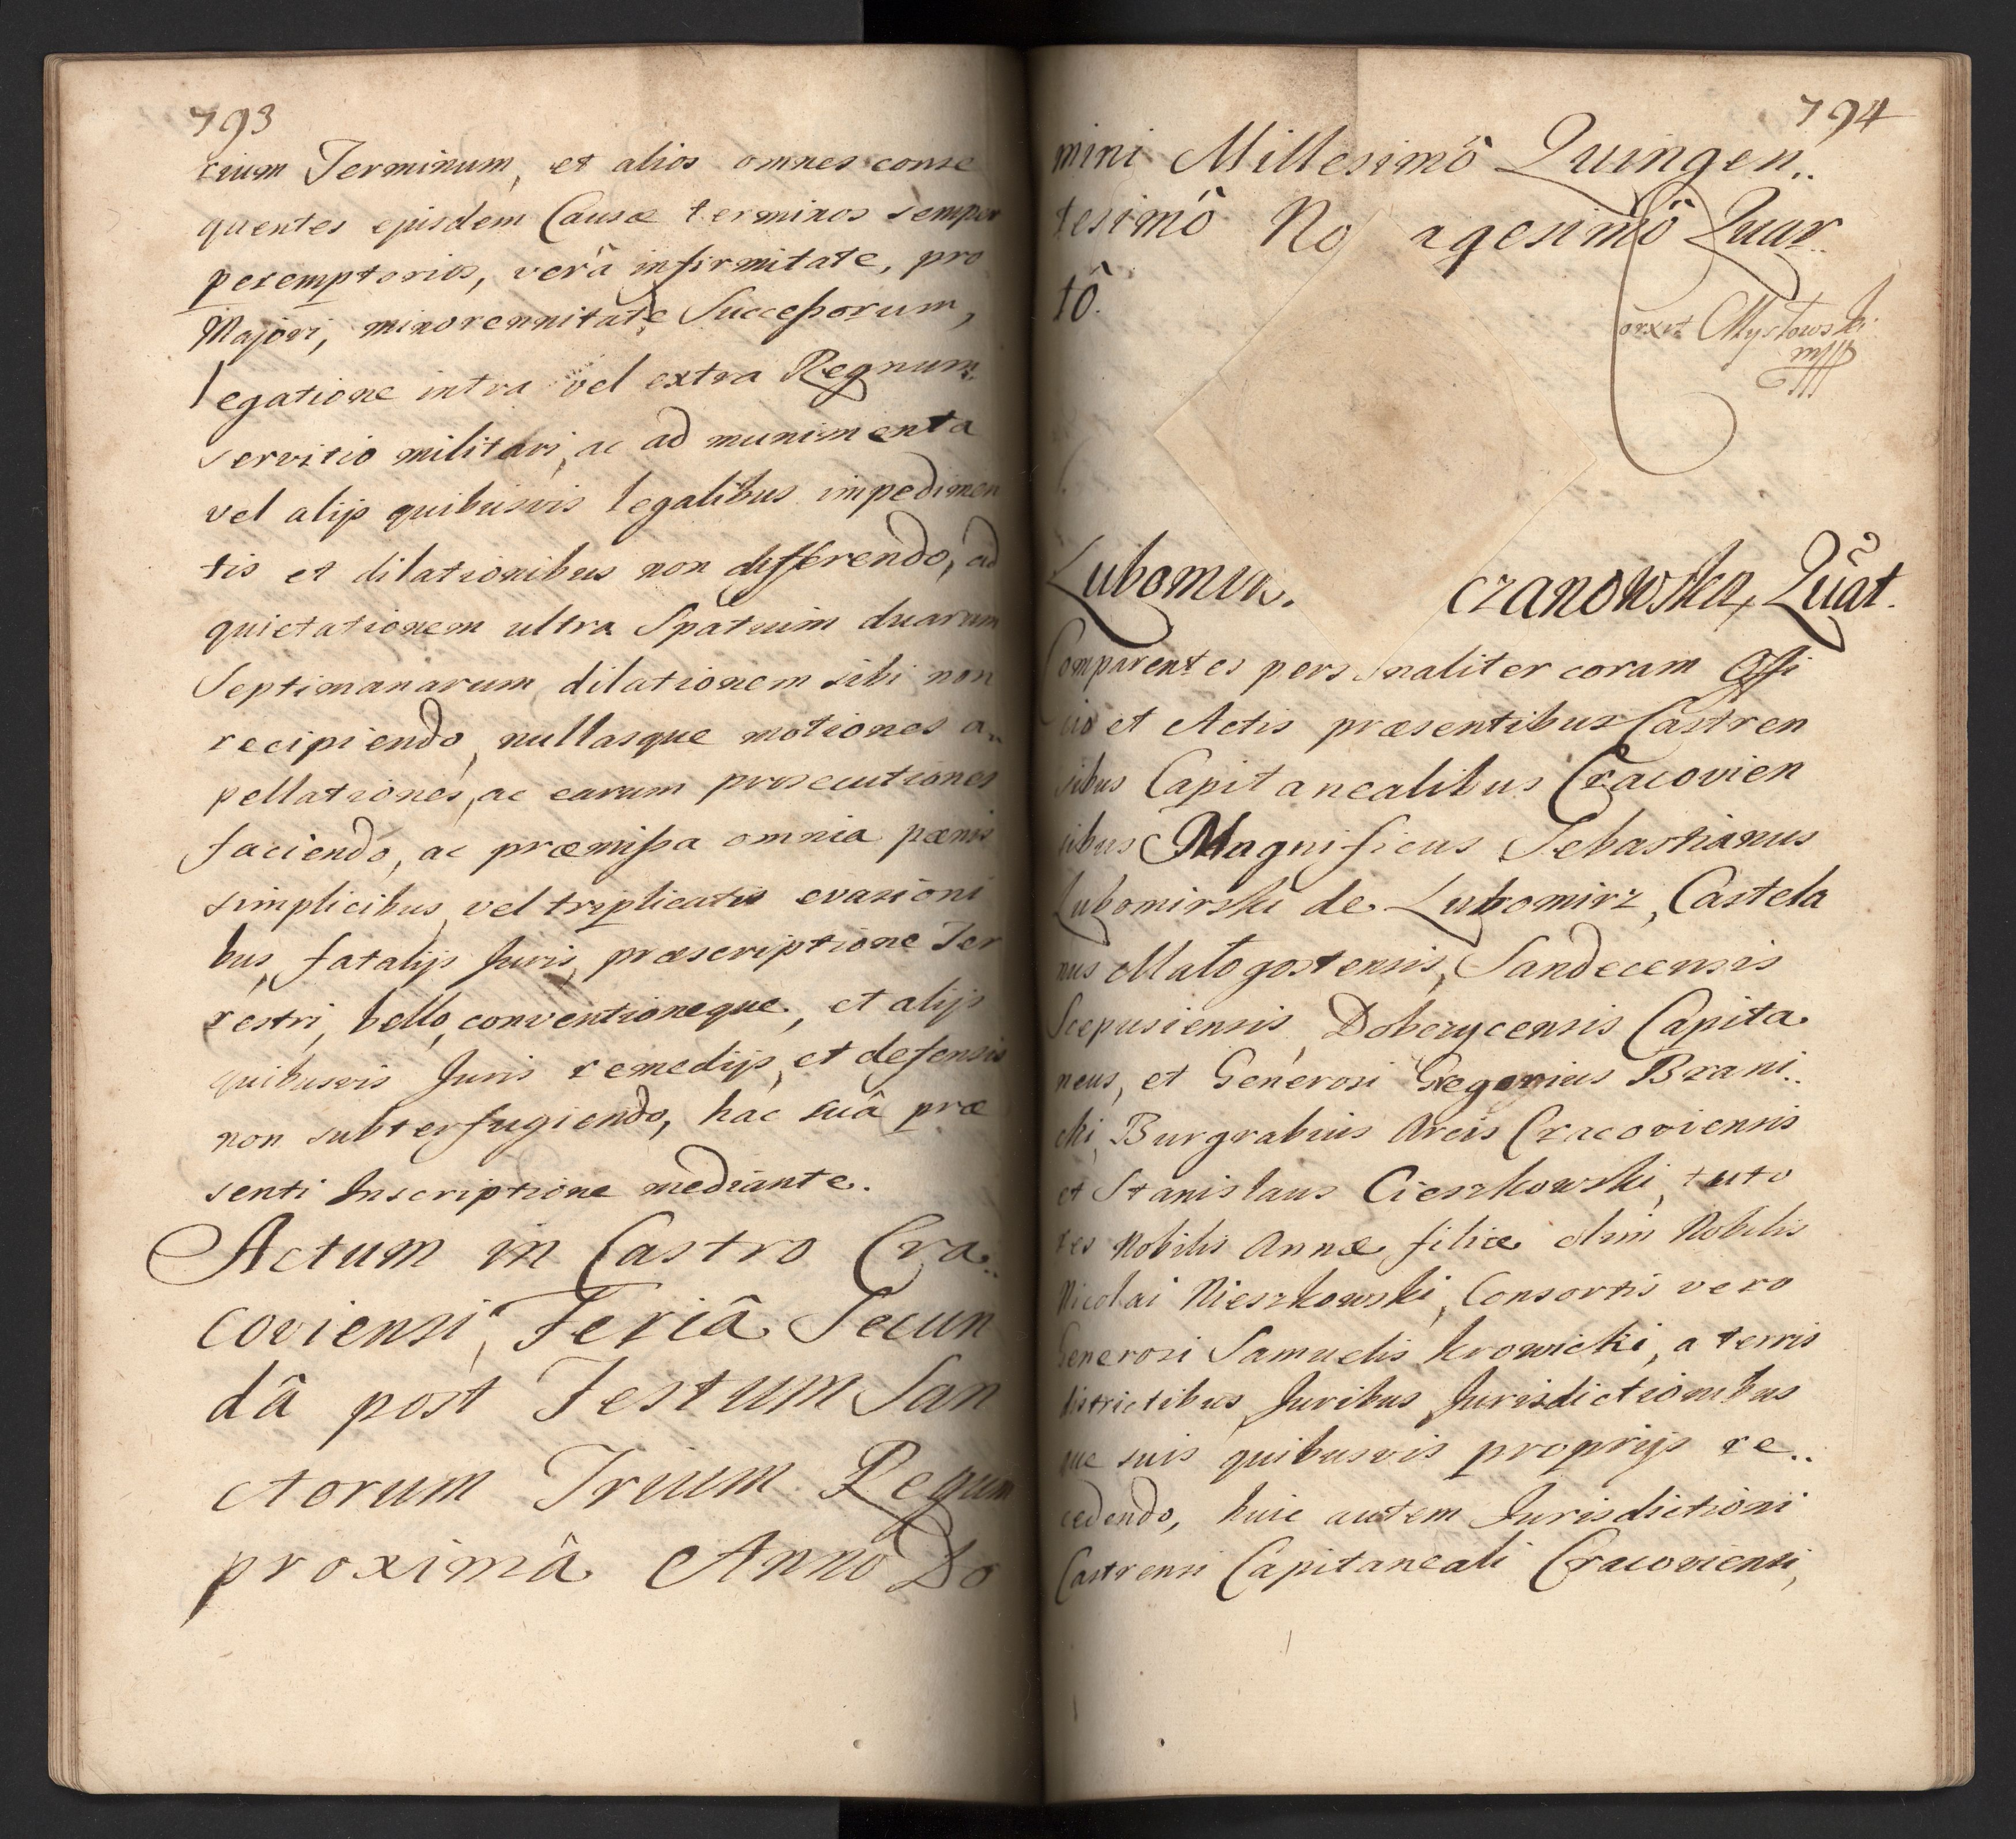 793
rium Terminum, et alios omnes conse
quentes ejusdem Causæ terminos semper
peremptorios, verâ infirmitate, pro
Majori, minorennitate Successorum,
legatione intra vel extra Regnum
servitio militari, ac ad munimenta
vel alijs quibusvis legalibus impedimen
tis et dilationibus non differendo, ad
quietationem ultra Spatium duarum
Septimanarum dilationem sibi non
recipiendo, nullasque motiones a..
pellationes, ac earum prosecutiones
faciendo, ac præmissa omnia pænis
simplicibus, vel triplicatis evasioni
bus, fatalijs Juris, præscriptione Ter
restri, bello, conventioneque, et alijs
quibusvis Juris remedijs, et defensis
non subterfugiendo, hac suâ præ
senti Inscriptione mediante.
Actum in Castro Cra..
coviensi, Feriâ Secun
dâ post Festum San
ctorum Trium Regum
proximâ Anno Do
794
mini Millesimô Quingen..
tesimô No agesimô Quar..
tô.
Lubomir. czanowska, Quat.
Comparentes personaliter coram Offi
cio et Actis præsentibus Castren
sibus Capitanealibus Cracovien
sibus Magnificus Sebastianus
Lubomirski de Lubomirz, Castela
nus Malogostensis, Sandecensis
Scepusiensis, Dobczycensis Capita
neus, et Generosi Gregorius Brani..
cki, Burgrabius Arcis Cracoviensis
et Stanislaus Cieszkowski, tuto
res Nobilis Annæ, filiæ olim Nobilis
Nicolai Nieszkowski, Consortis vero
Generosi Samuelis Krowicki, a terris
districtibus, Juribus, Jurisdictionibus
que suis quibusvis proprijs re..
cedendo, huic autem Jurisdictioni
Castrensi Capitaneali Cracoviensi,